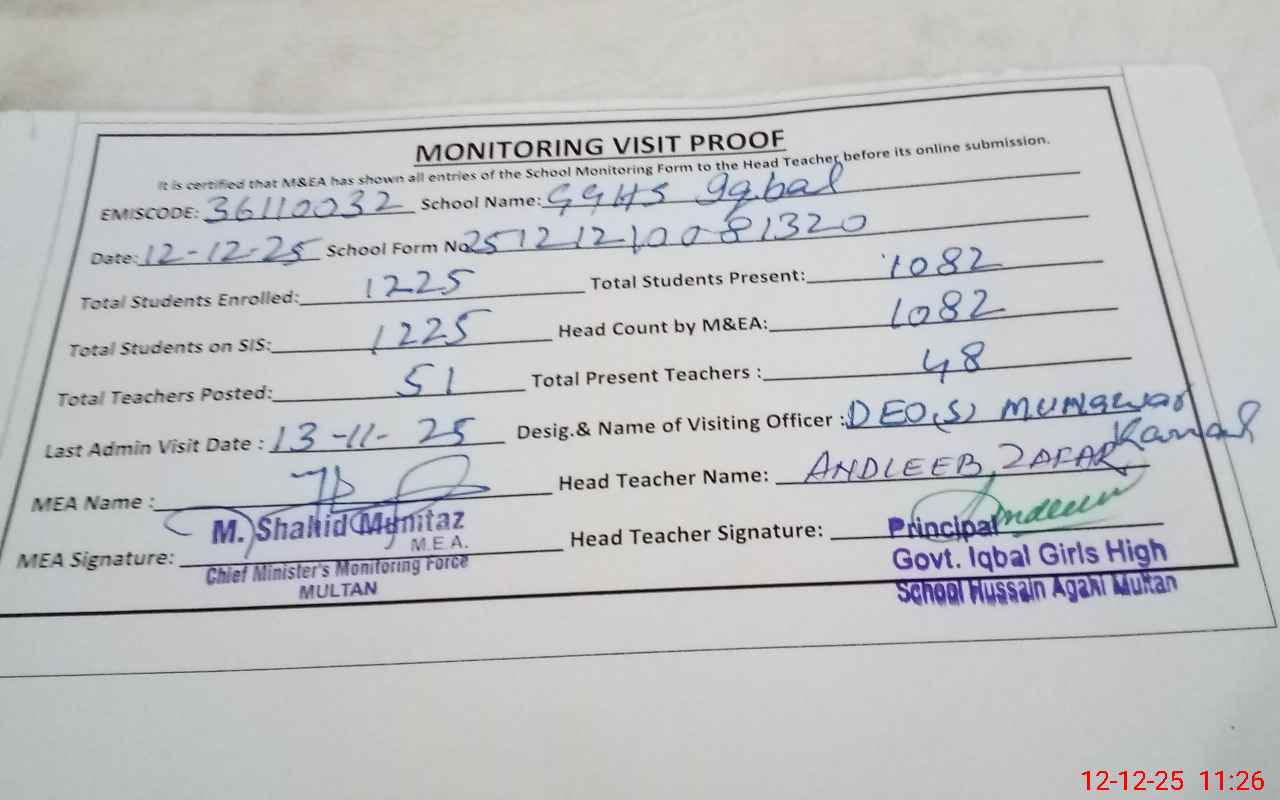 MONITORING VISIT PROOF
It is certified that M&EA has shown all entries of the School Monitoring Form to the Head Teacher before its online submission.
EMISCODE: 36110032 School Name: GGHS Iqbal
Date: 12-12-25 School Form No 25121210081320
Total Students Enrolled: 1225 Total Students Present: 1082
Total Students on SIS: 1225 Head Count by M&EA: 1082
Total Teachers Posted: 51 Total Present Teachers : 48
Last Admin Visit Date : 13-11-25 Desig.& Name of Visiting Officer : DEO(S) Munawar
MEA Name : Head Teacher Name: ANDLEEB ZAFAR
M. Shahid Mumtaz
M.E.A.
MEA Signature: Head Teacher Signature:
Chief Minister's Monitoring Force
MULTAN
Principal
Govt. Iqbal Girls High
School Hussain Agahi Multan
12-12-25 11:26